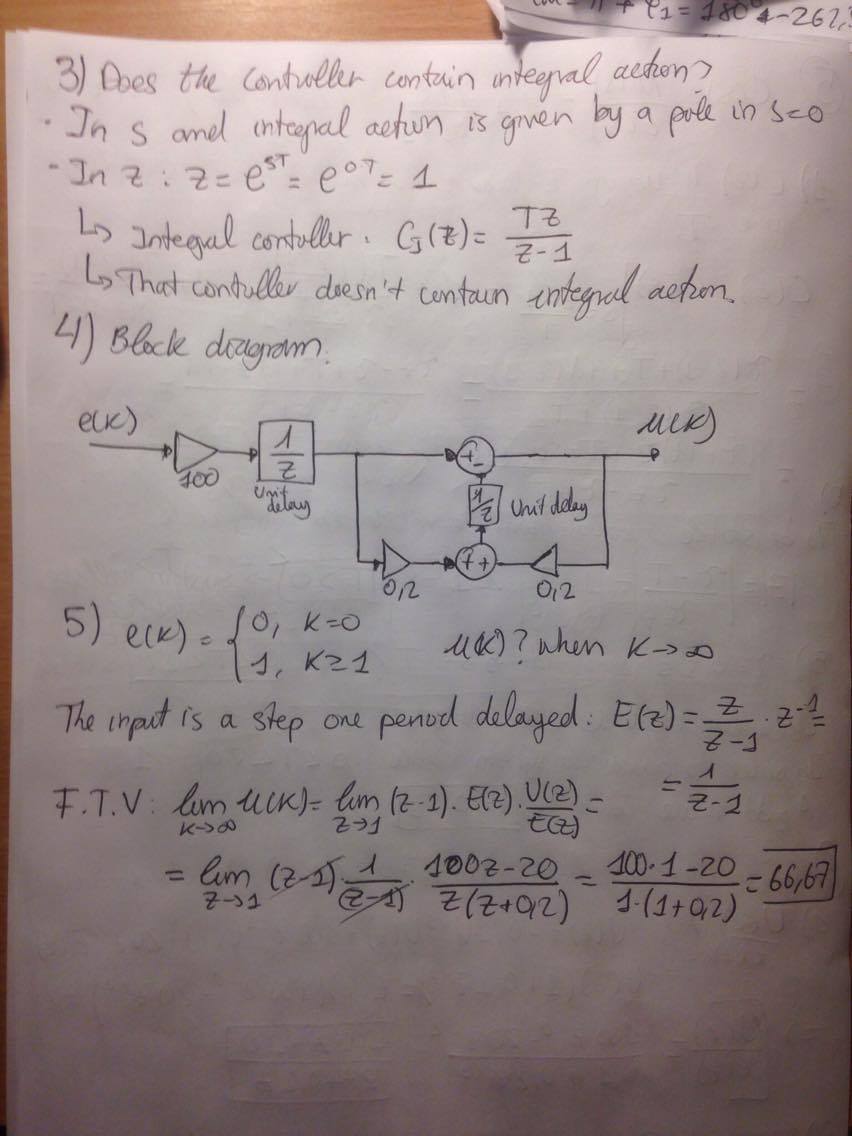 + φ1 = 180°+-262,
3) Does the controller contain integral action?
· In s and integral action is given by a pole in s=0
- In z : z = e^{sT} = e^{0T} = 1
↳ Integral contoller. G_I(z) = Tz/(z-1)
↳ That contuller doesn't contain integral action.
4) Block diagram.
e(k) 100 1/z Unit delay + - u(k)
1/z Unit delay
0,2 + + 0,2
5) e(k) = { 0, k=0
1, k≥1 u(k)? when k→∞
The input is a step one period delayed: E(z) = z/(z-1) · z^{-1} =
= 1/(z-1)
F.T.V: lim_{k→∞} u(k) = lim_{z→1} (z-1) · E(z) · U(z)/E(z) =
= lim_{z→1} (z-1) · 1/(z-1) · (100z-20)/(z(z+0,2)) = (100·1-20)/(1·(1+0,2)) = 66,67